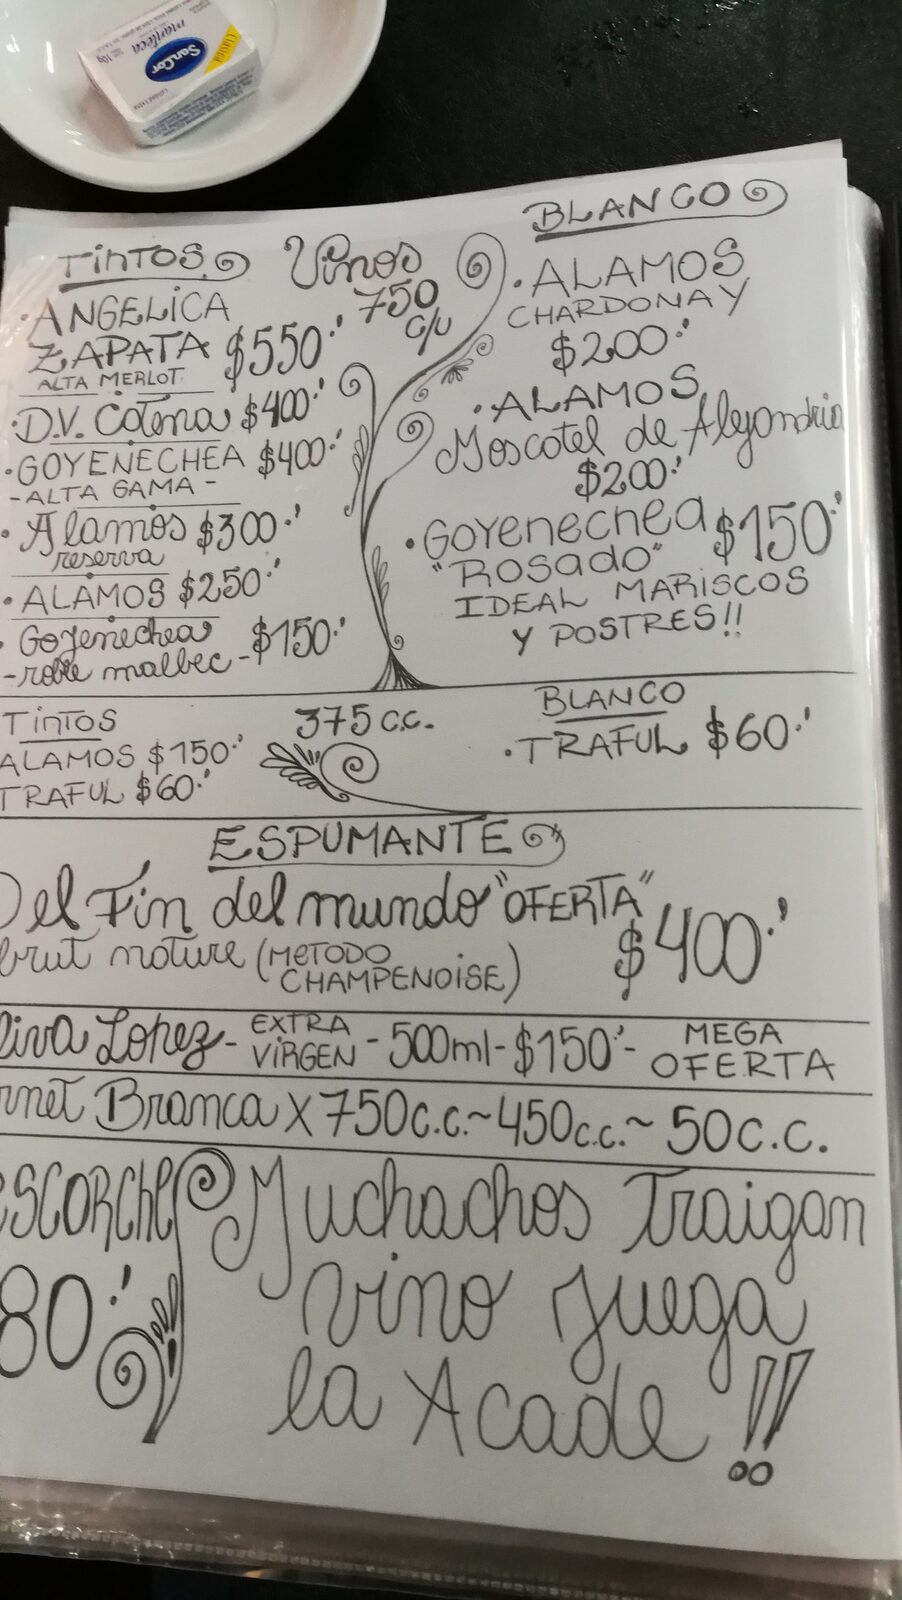 Clásica
SanCor
manteca
10g
BLANCO
TintOS
Vinos
750
c/u
·ANGELiCA
ZAPATA $550
ALTA MERLOT
·D.V. Catena $400
·GOYENECHEA $400
-ALTA GAMA-
·Alamos $300
reserva
·ALAMOS $250
·Goyenechea $150
-roble malbec-
·ALAMOS
CHARDONAY
$200
·ALAMOS
Moscatel de Alejandria
$200
·Goyenechea $150
"Rosado"
IDEAL MARISCOS
Y POSTRES!!
TintOS
375 c.c.
ALAMOS $150
TRAFUL $60
BLANCO
·TRAFUL $60
ESPUMANTE
Del Fin del mundo "OFERTA"
brut nature (METODO CHAMPENOISE) $400
liva Lopez - EXTRA ViRGEN - 500ml - $150 - MEGA OFERTA
rnet Branca X 750c.c. ~ 450c.c. ~ 50c.c.
ESCORCHE
80
Muchachos Traigan
vino juega
la Acade!!